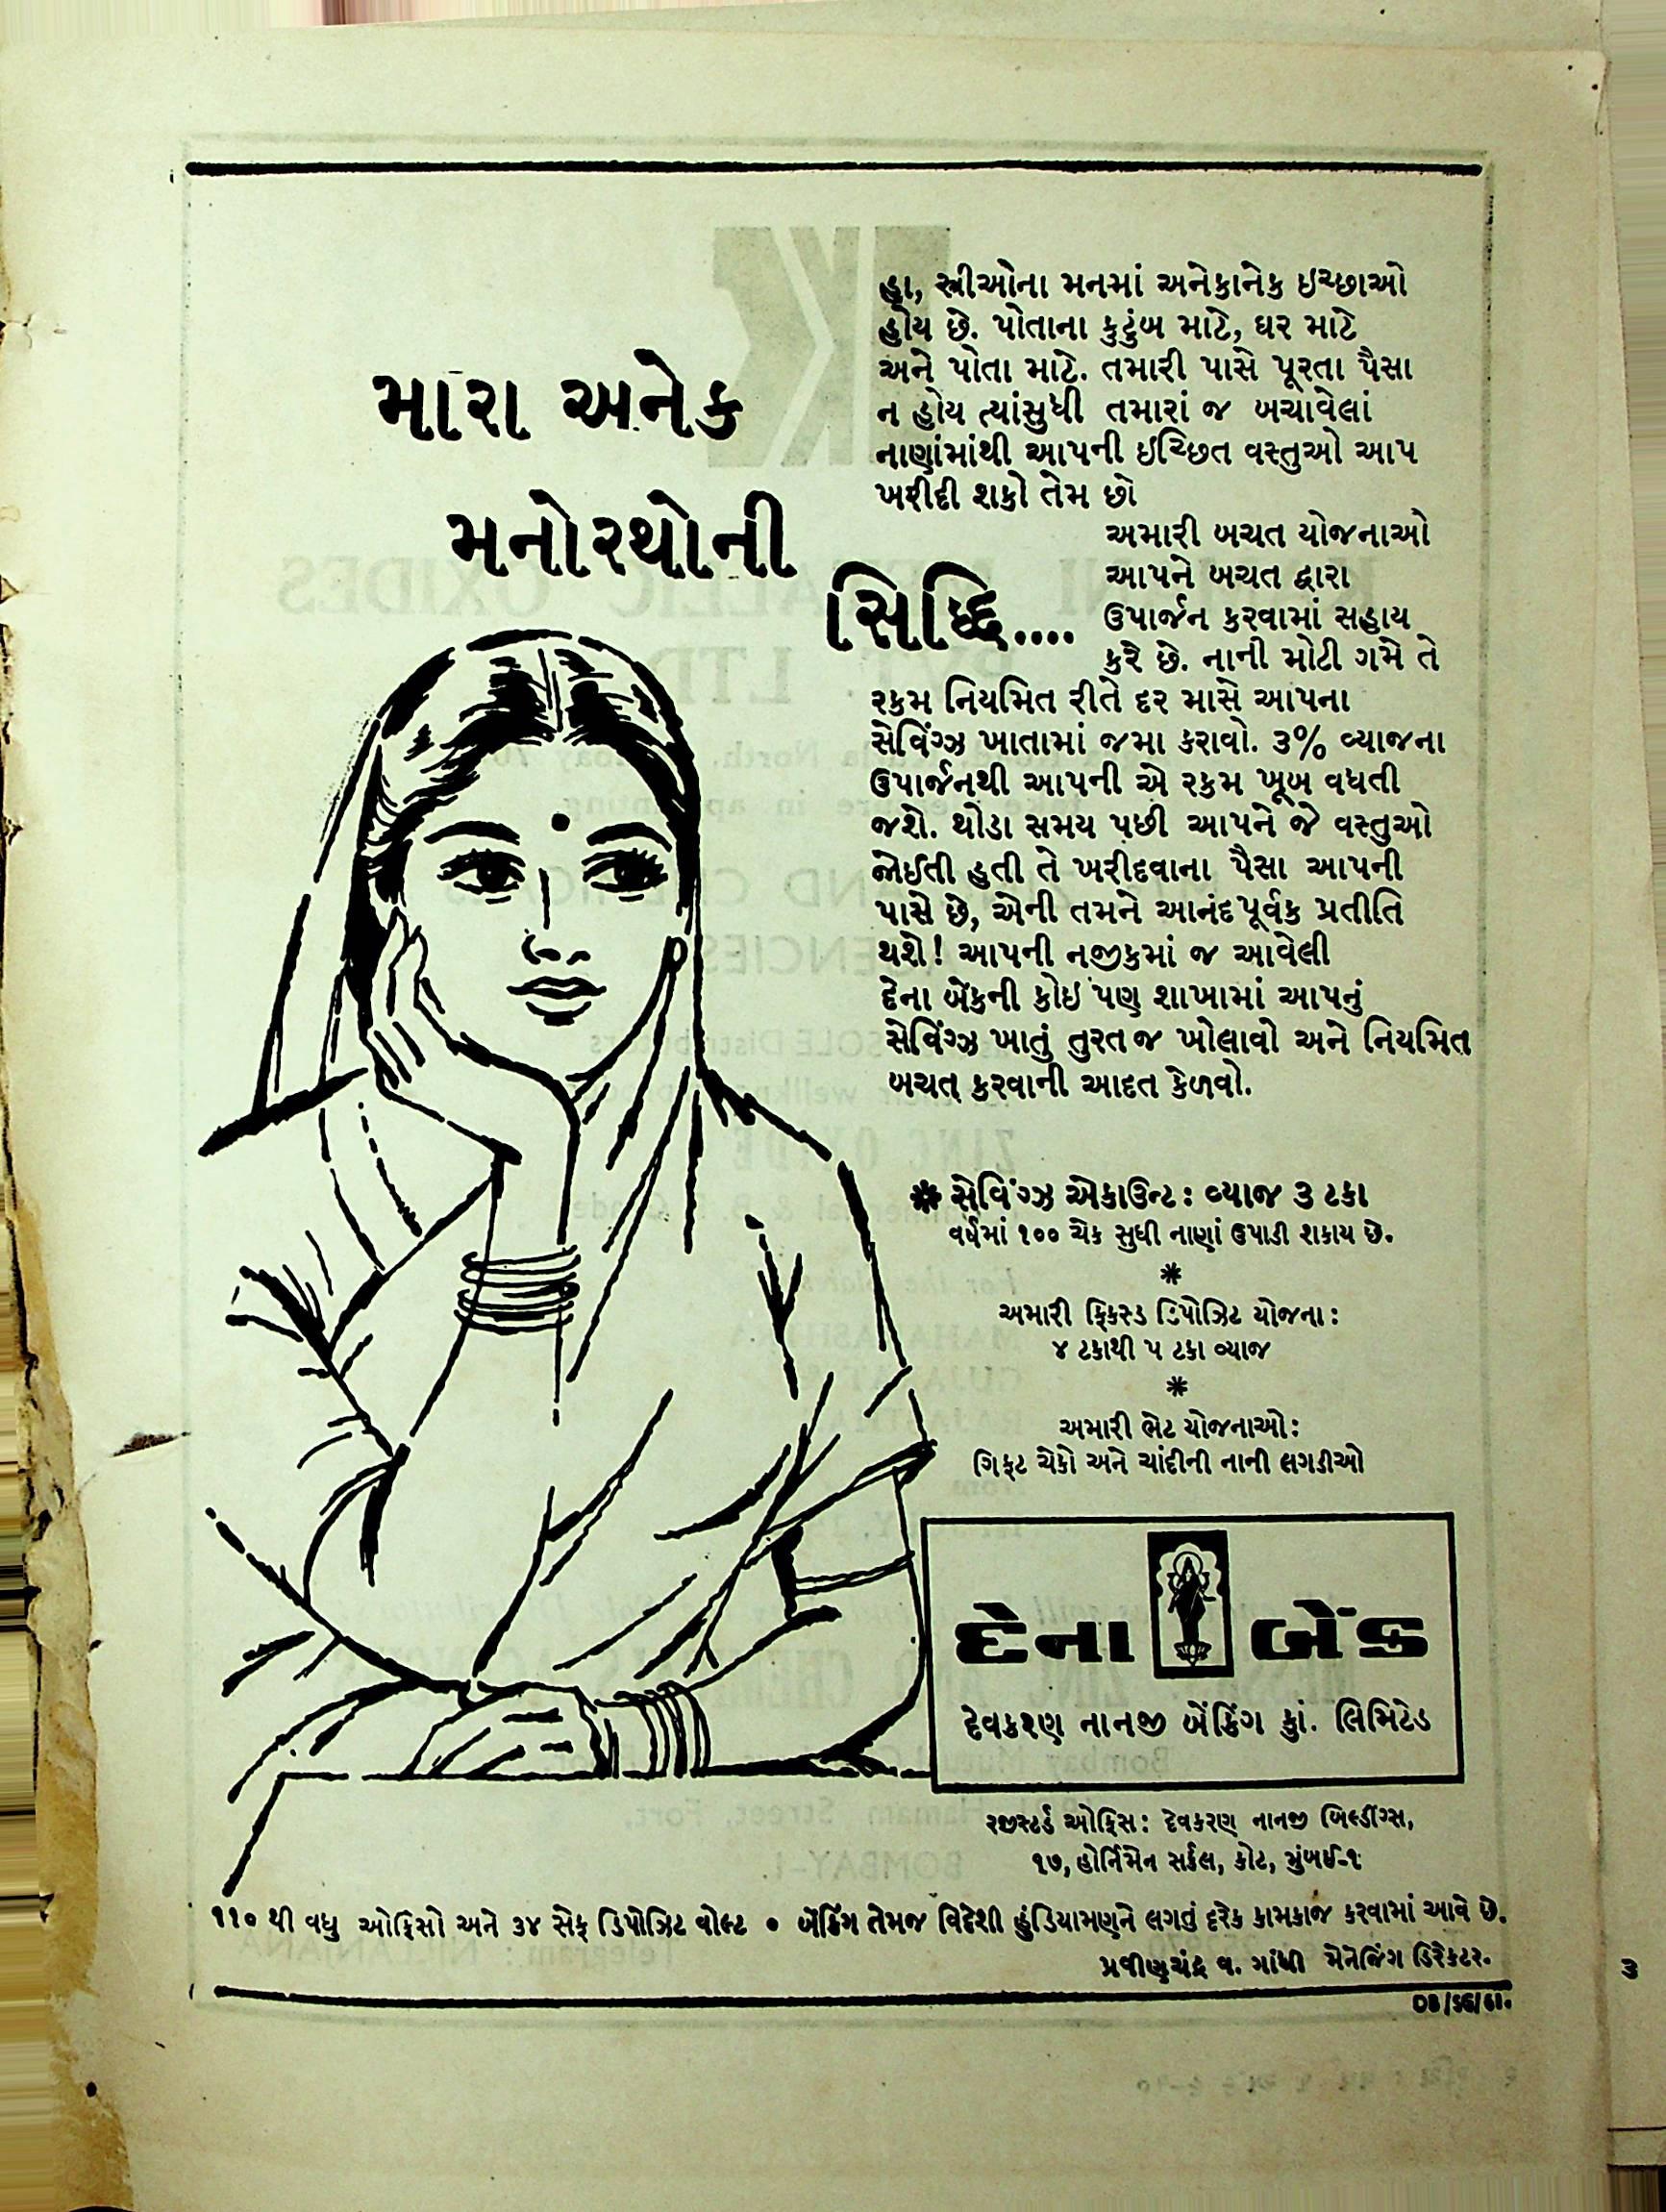 મારા અનેક
મનોરથોની
સિદ્ધિ....
હા, સ્ત્રીઓના મનમાં અનેકાનેક ઇચ્છાઓ
હોય છે. પોતાના કુટુંબ માટે, ઘર માટે
અને પોતા માટે. તમારી પાસે પૂરતા પૈસા
ન હોય ત્યાંસુધી તમારાં જ બચાવેલાં
નાણાંમાંથી આપની ઇચ્છિત વસ્તુઓ આપ
ખરીદી શકો તેમ છો
અમારી બચત યોજનાઓ
આપને બચત દ્વારા
ઉપાર્જન કરવામાં સહાય
કરે છે. નાની મોટી ગમે તે
રકમ નિયમિત રીતે દર માસે આપના
સેવિંગ્ઝ ખાતામાં જમા કરાવો. ૩% વ્યાજના
ઉપાર્જનથી આપની એ રકમ ખૂબ વધતી
જશે. થોડા સમય પછી આપને જે વસ્તુઓ
જોઈતી હતી તે ખરીદવાના પૈસા આપની
પાસે છે, એની તમને આનંદપૂર્વક પ્રતીતિ
થશે! આપની નજીકમાં જ આવેલી
દેના બેંકની કોઇ પણ શાખામાં આપનું
સેવિંગ્ઝ ખાતું તુરત જ ખોલાવો અને નિયમિત
બચત કરવાની આદત કેળવો.
* સેવિંગ્ઝ એકાઉન્ટ: વ્યાજ ૩ ટકા
વર્ષમાં ૧૦૦ ચેક સુધી નાણાં ઉપાડી શકાય છે.
*
અમારી ફિકસ્ડ ડિપોઝિટ યોજના:
૪ ટકાથી ૫ ટકા વ્યાજ
*
અમારી ભેટ યોજનાઓ:
ગિફ્ટ ચેકો અને ચાંદીની નાની લગડીઓ
દેના બેંક
દેવકરણ નાનજી બેંકિંગ કું. લિમિટેડ
રજીસ્ટર્ડ ઓફિસ: દેવકરણ નાનજી બિલ્ડીંગ્સ,
૧૭, હોર્નિમેન સર્કલ, કોટ, મુંબઈ-૧
૧૧૦ થી વધુ ઓફિસો અને ૩૪ સેફ ડિપોઝિટ વોલ્ટ • બેંકિંગ તેમજ વિદેશી હુંડિયામણને લગતું દરેક કામકાજ કરવામાં આવે છે.
પ્રવીણચંદ્ર વ. ગાંધી મેનેજિંગ ડિરેકટર.
૩